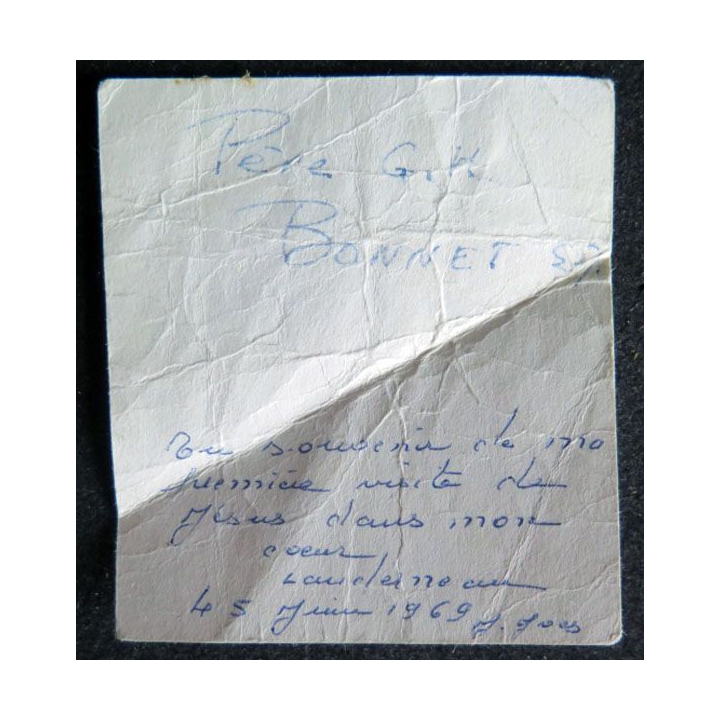 Père G.H.
BONNET
En souvenir de ma
première visite de
Jésus dans mon
coeur
Landerneau
Juin 1969